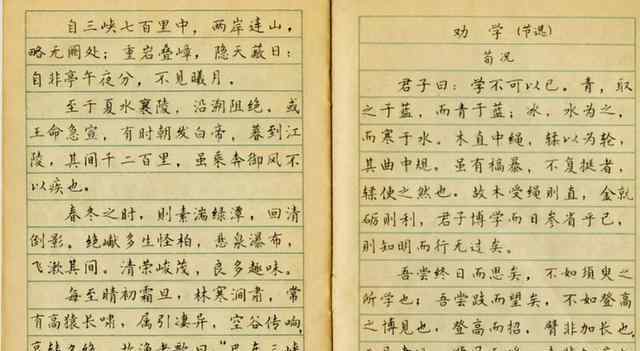 自三峡七百里中，两岸连山，
略无阙处；重岩叠嶂，隐天蔽日：
自非亭午夜分，不见曦月。
至于夏水襄陵，沿溯阻绝。或
王命急宣，有时朝发白帝，暮到江
陵，其间千二百里，虽乘奔御风不
以疾也。
春冬之时，则素湍绿潭，回清
倒影。绝巘多生怪柏，悬泉瀑布，
飞漱其间。清荣峻茂，良多趣味。
每至晴初霜旦，林寒涧肃，常
有高猿长啸，属引凄异，空谷传响，
故渔者歌曰“巴东三峡
劝 学（节选）
荀况
君子曰：学不可以已。青，取
之于蓝，而青于蓝；冰，水为之，
而寒于水。木直中绳，𫐓以为轮，
其曲中规。虽有槁暴，不复挺者，
𫐓使之然也。故木受绳则直，金就
砺则利，君子博学而日参省乎已，
则知明而行无过矣。
吾尝终日而思矣，不如须臾之
所学也；吾尝跂而望矣，不如登高
之博见也。登高而招，臂非加长也，